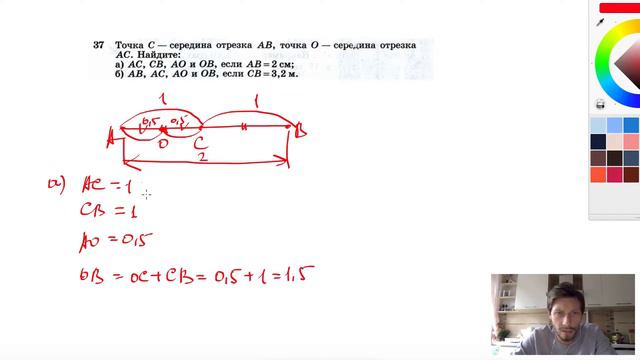 37 Точка C — середина отрезка AB, точка O — середина отрезка
AC. Найдите:
а) AC, CB, AO и OB, если AB = 2 см;
б) AB, AC, AO и OB, если CB = 3,2 м.
1 1
0,5 0,5
A O C B
2
а) AC = 1
CB = 1
AO = 0,5
OB = OC + CB = 0,5 + 1 = 1,5